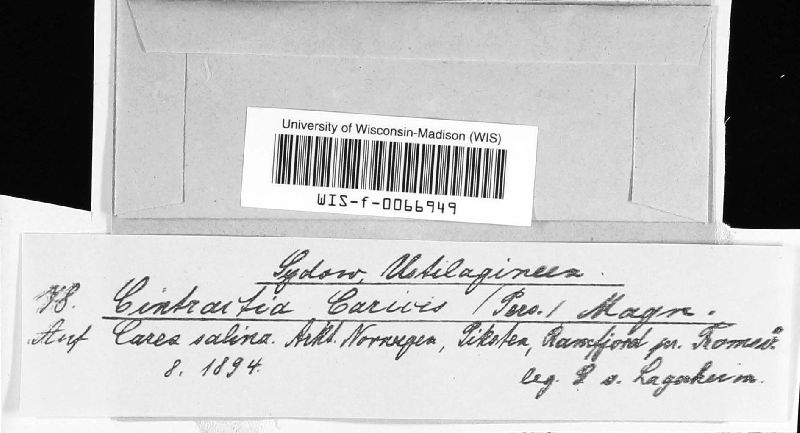 University of Wisconsin-Madison (WIS)
WIS-f-0066949
Sydow, Ustilagineen.
Cintractia Caricis (Pers.) Magn.
Auf Carex salina. Arkt. Norwegen, Ramfjord pr. Tromsö
8. 1894.
leg. G. v. Lagerheim.